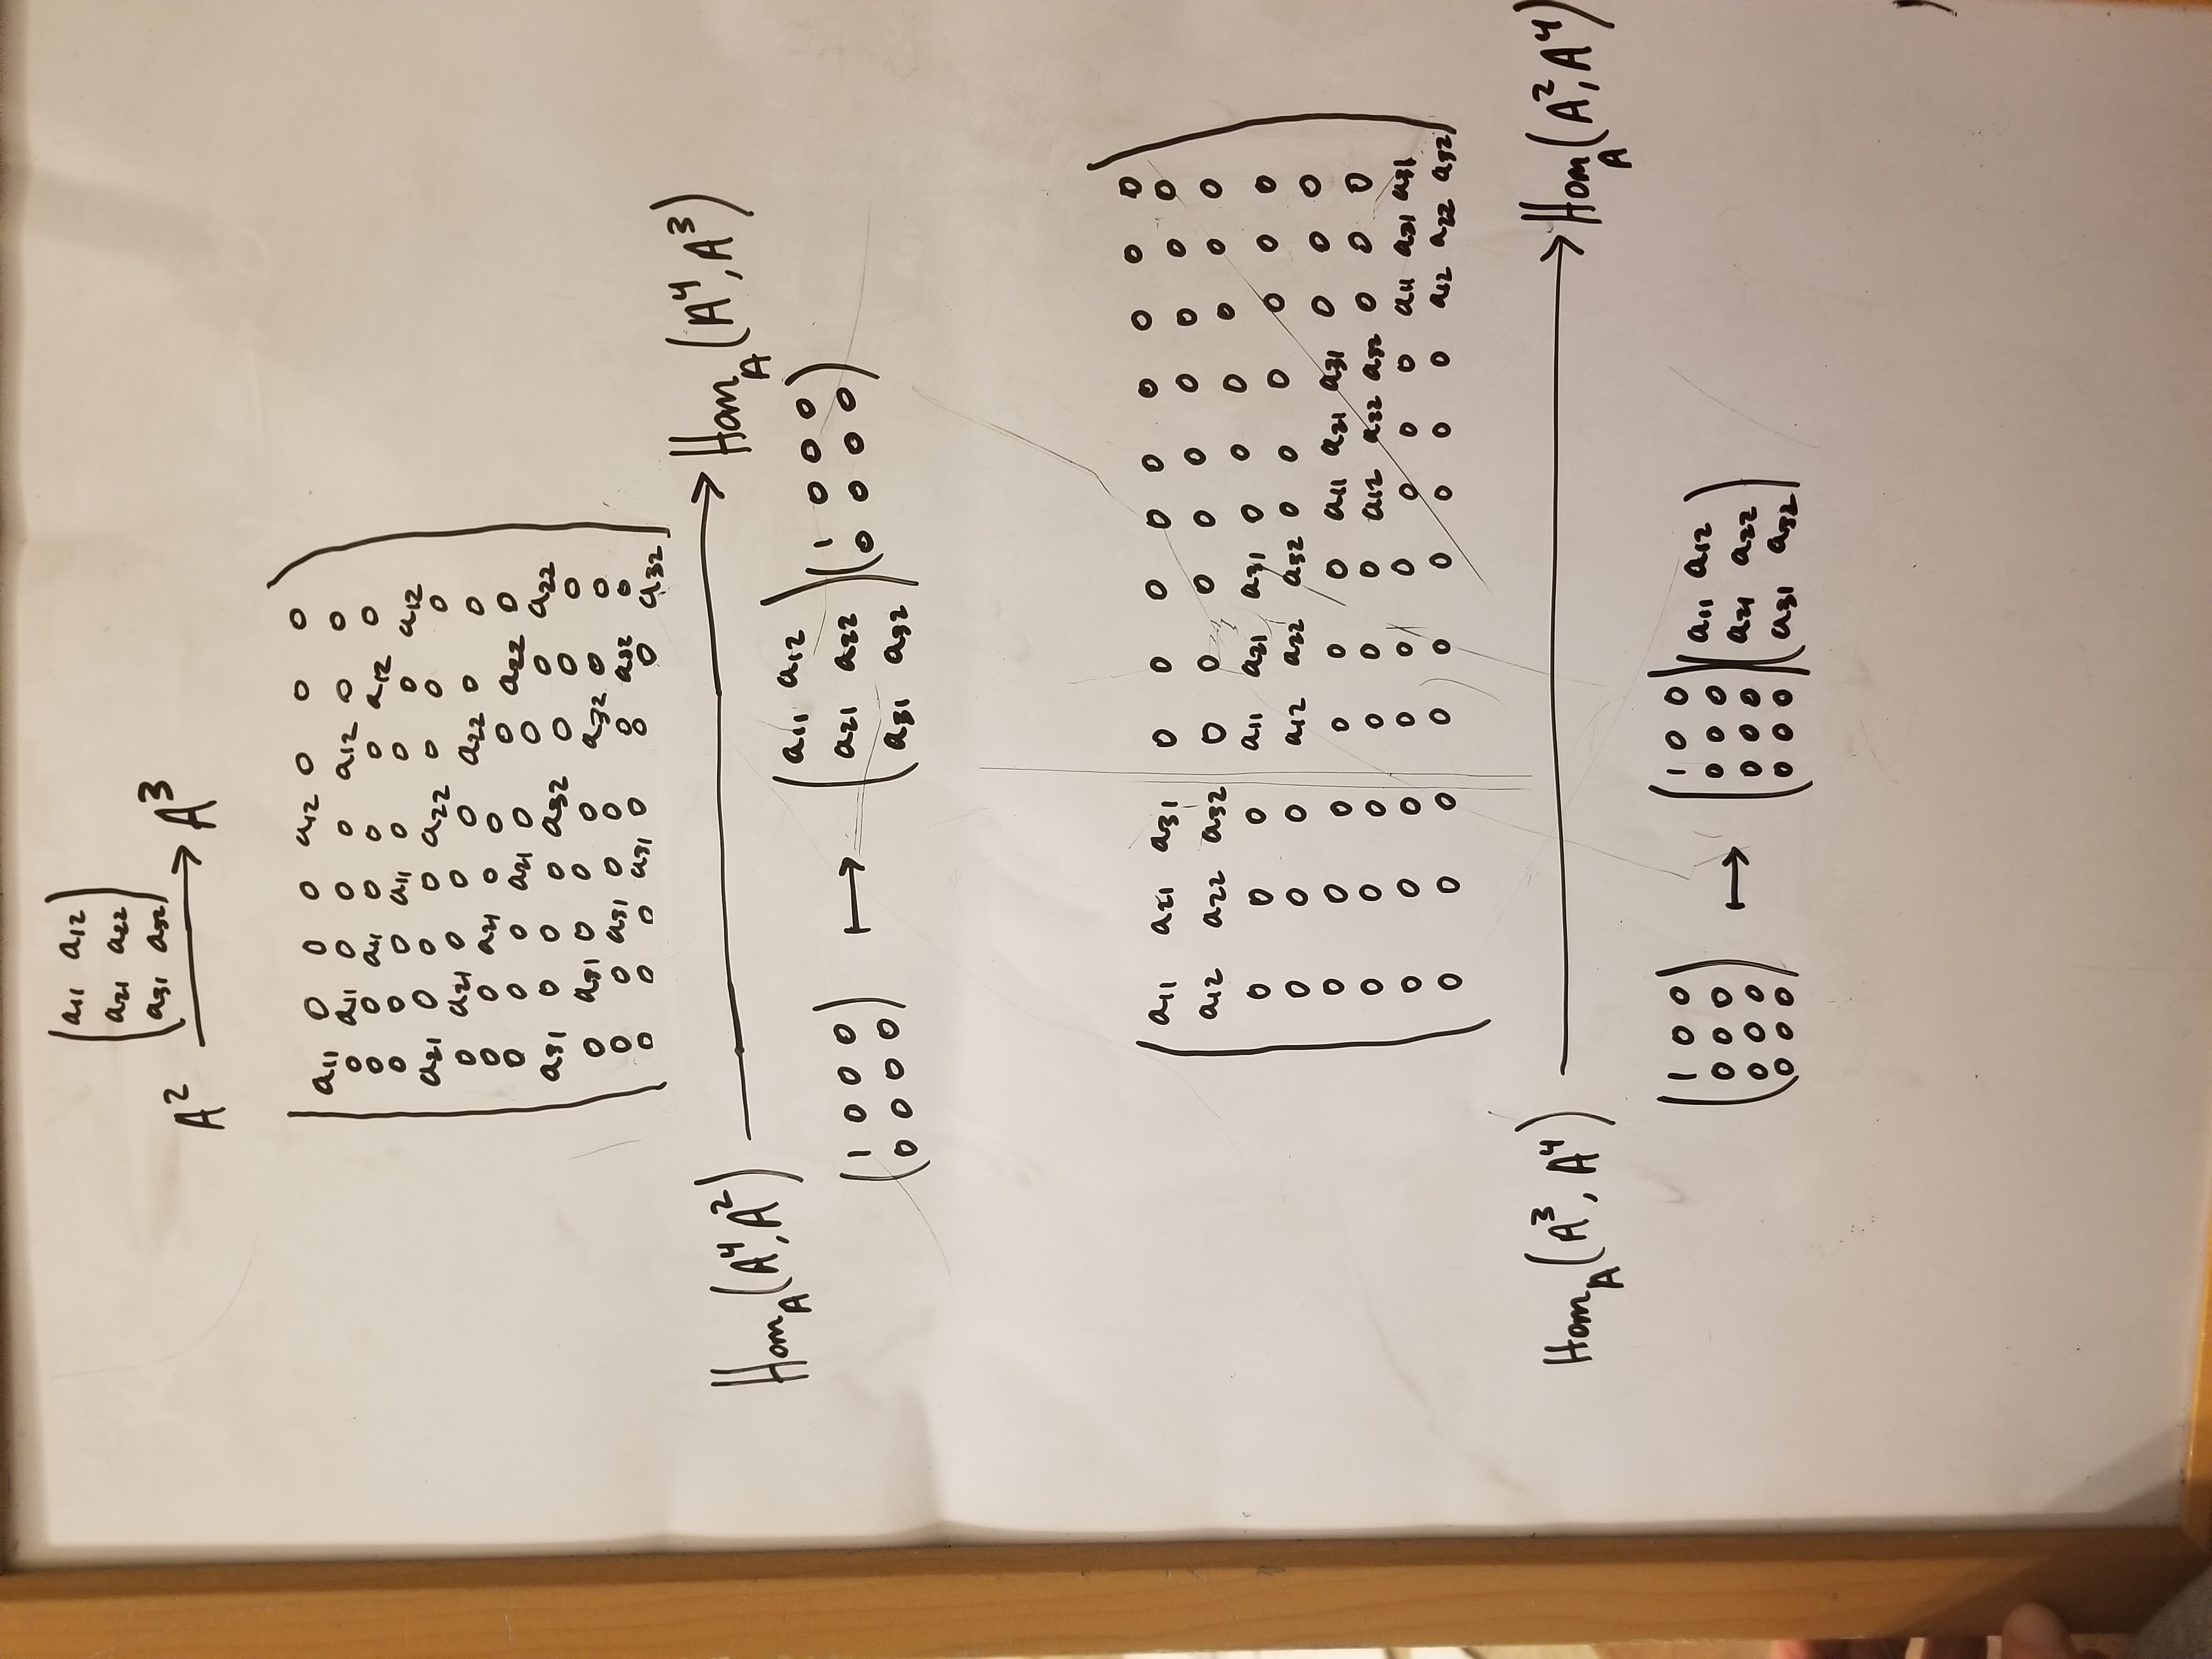 a11 a12
a21 a22
a31 a32
A² → A³
a11 0 0 0 a12 0 0 0
0 a11 0 0 0 a12 0 0
0 0 a11 0 0 0 a12 0
0 0 0 a11 0 0 0 a12
a21 0 0 0 a22 0 0 0
0 a21 0 0 0 a22 0 0
0 0 a21 0 0 0 a22 0
0 0 0 a21 0 0 0 a22
a31 0 0 0 a32 0 0 0
0 a31 0 0 0 a32 0 0
0 0 a31 0 0 0 a32 0
0 0 0 a31 0 0 0 a32
Hom_A(A⁴, A²) → Hom_A(A⁴, A³)
(1 0 0 0 ↦ (a11 a12 (1 0 0 0
0 0 0 0) a21 a22 0 0 0 0)
a31 a32)
a11 a21 a31 0 0 0 0 0 0 0 0 0
a12 a22 a32 0 0 0 0 0 0 0 0 0
0 0 0 a11 a21 a31 0 0 0 0 0 0
0 0 0 a12 a22 a32 0 0 0 0 0 0
0 0 0 0 0 0 a11 a21 a31 0 0 0
0 0 0 0 0 0 a12 a22 a32 0 0 0
0 0 0 0 0 0 0 0 0 a11 a21 a31
0 0 0 0 0 0 0 0 0 a12 a22 a32
Hom_A(A³, A⁴) → Hom_A(A², A⁴)
(1 0 0 (1 0 0 (a11 a12
0 0 0 ↦ 0 0 0 a21 a22
0 0 0 0 0 0 a31 a32)
0 0 0) 0 0 0)